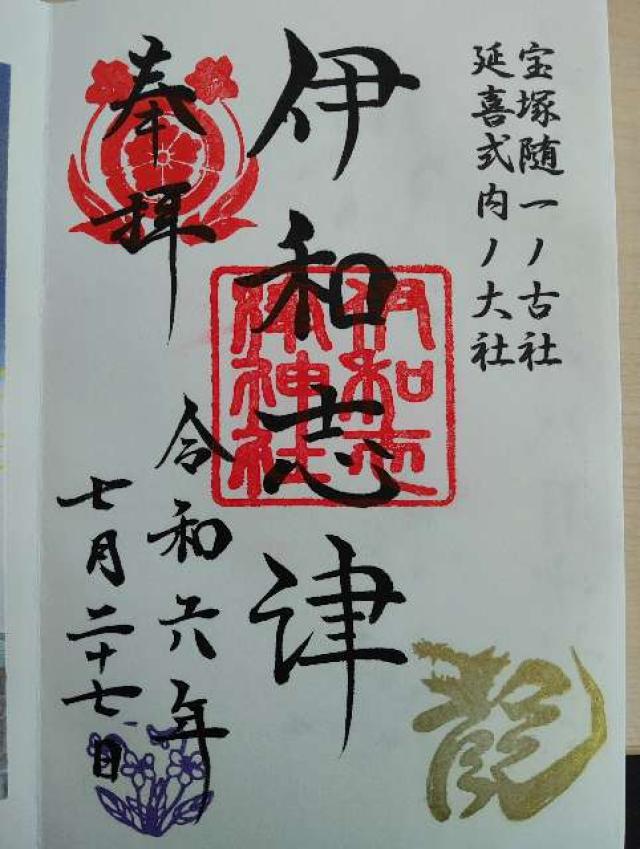 宝塚随一ノ古社
延喜式内ノ大社
伊和志津
伊和志
津神社
奉拝
令和六年
七月二十七日
龍